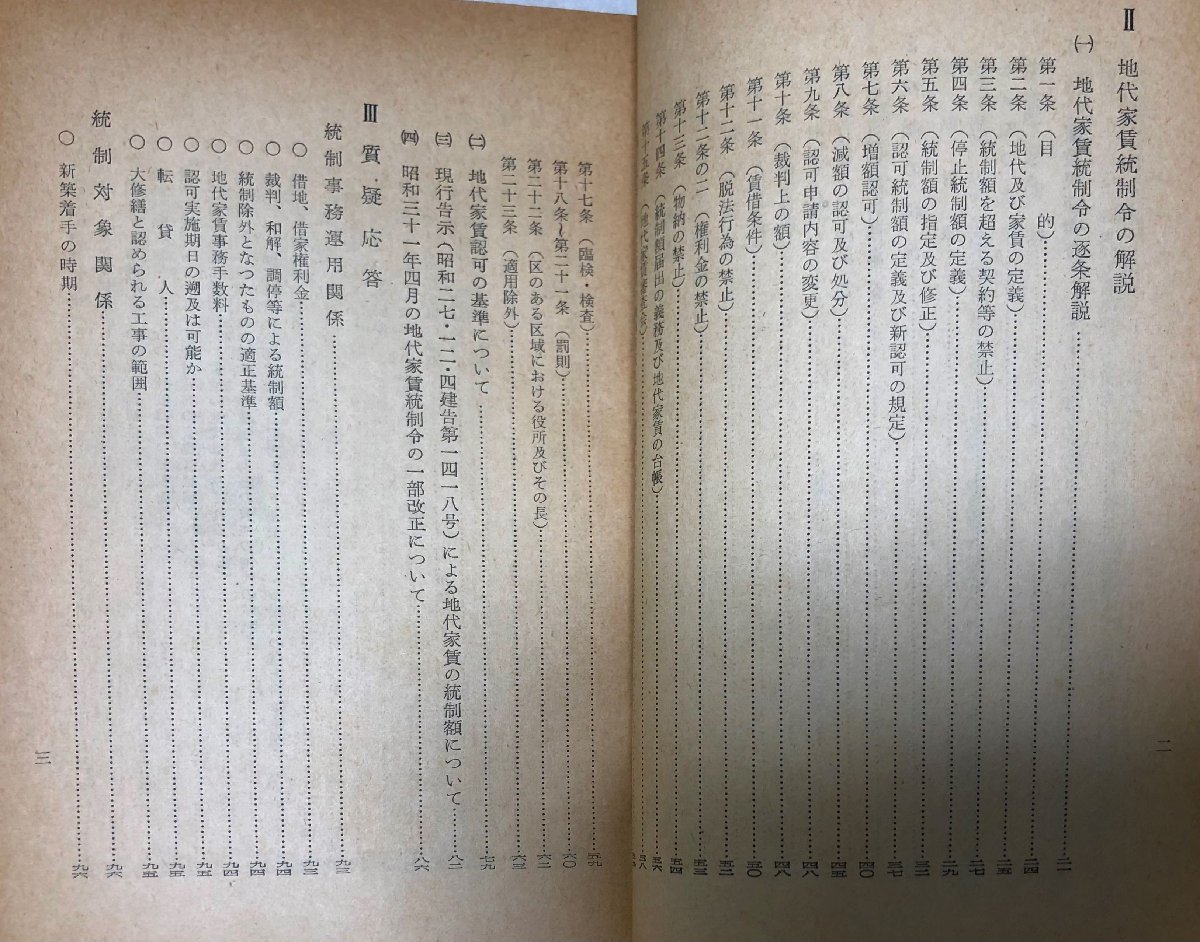 Ⅱ 地代家賃統制令の解説
㈠ 地代家賃統制令の逐条解説……二一
第一条 (目 的)……二四
第二条 (地代及び家賃の定義)……二五
第三条 (統制額を超える契約等の禁止)……二七
第四条 (停止統制額の定義)……二九
第五条 (統制額の指定及び修正)……三二
第六条 (認可統制額の定義及び新認可の規定)……三七
第七条 (増額認可)……四〇
第八条 (減額の認可及び処分)……四五
第九条 (認可申請内容の変更)……四八
第十条 (裁判上の額)……四八
第十一条 (賃借条件)……五〇
第十二条 (脱法行為の禁止)……五二
第十二条の二 (権利金の禁止)……五三
第十三条 (物納の禁止)……五四
第十四条 (統制額届出の義務及び地代家賃の台帳)……五六
第十五条
二
第十七条 (臨検・検査)……五九
第十八条〜第二十一条 (罰則)……六〇
第二十二条 (区のある区域における役所及びその長)……六二
第二十三条 (適用除外)……六三
㈡ 地代家賃認可の基準について……七九
㈢ 現行告示(昭和二七・一二・四建告第一四一八号)による地代家賃の統制額について……八二
㈣ 昭和三十一年四月の地代家賃統制令の一部改正について……八六
Ⅲ 質疑応答
統制事務運用関係……九三
○ 借地、借家権利金……九三
○ 裁判、和解、調停等による統制額……九四
○ 統制除外となつたものの適正基準……九四
○ 地代家賃事務手数料……九五
○ 認可実施期日の遡及は可能か……九五
○ 転貸人……九五
○ 大修繕と認められる工事の範囲……九五
統制対象関係……九六
○ 新築着手の時期……九六
三